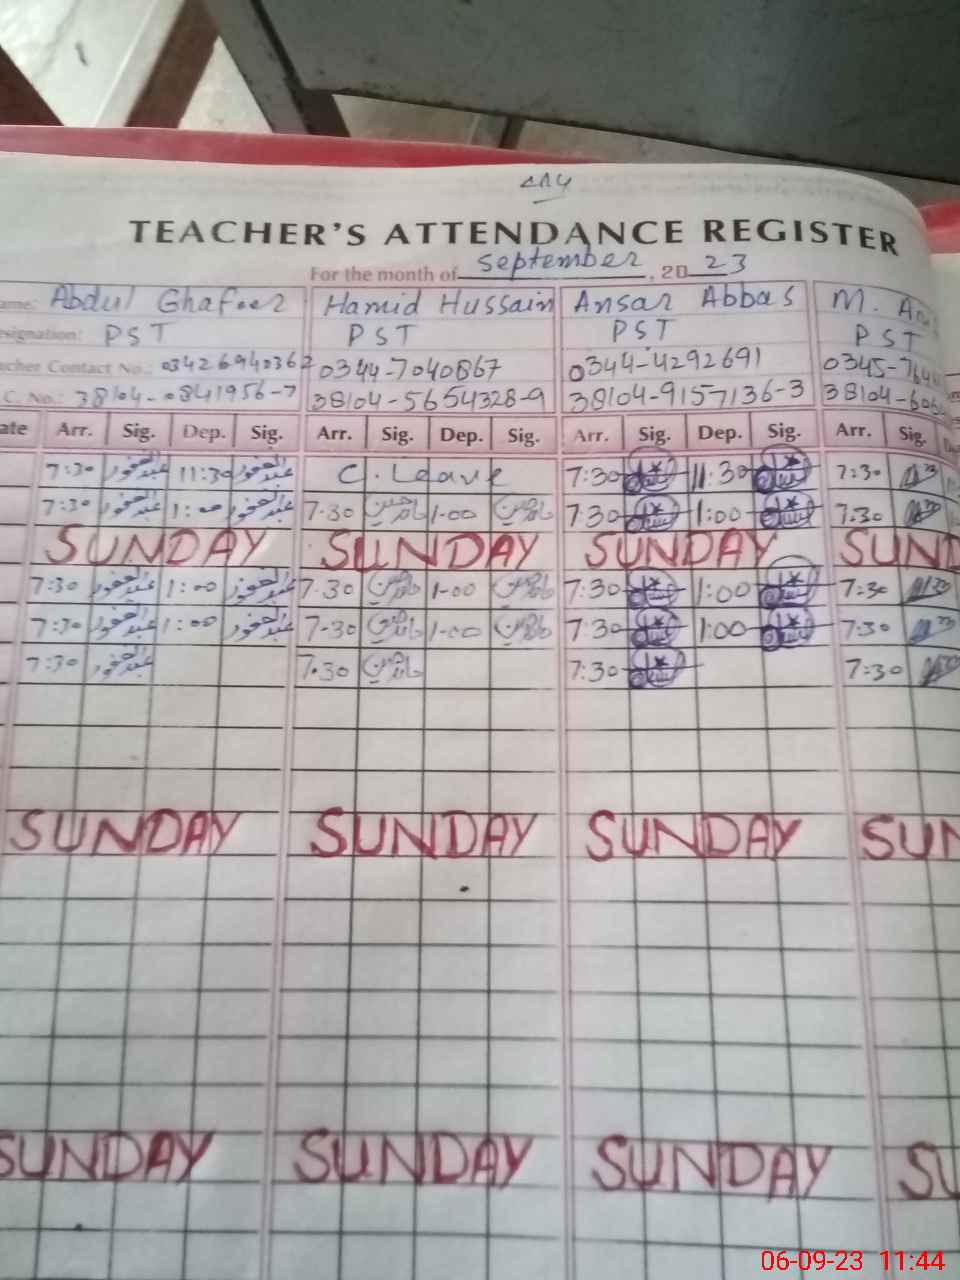 TEACHER'S ATTENDANCE REGISTER
For the month of September, 2023
ame: Abdul Ghafoor Hamid Hussain Ansar Abbas M.
esignation: PST PST PST PST
acher Contact No.: 03426940362 0344-7040867 0344-4292691 0345-764
.C. No.: 38104-0841956-7 38104-5654328-9 38104-9157136-3 38104-606
ate Arr. Sig. Dep. Sig. Arr. Sig. Dep. Sig. Arr. Sig. Dep. Sig. Arr. Sig. De
7:30 عبدالغفور 11:30 عبدالغفور C. Leave 7:30 11:30 7:30
7:30 عبدالغفور 1:00 عبدالغفور 7-30 حامد حسین 1-00 حامد حسین 7:30 1:00 7:30
SUNDAY SUNDAY SUNDAY SUND
7:30 عبدالغفور 1:00 عبدالغفور 7-30 حامد حسین 1-00 حامد حسین 7:30 1:00 7:30
7:30 عبدالغفور 1:00 عبدالغفور 7-30 حامد حسین 1-00 حامد حسین 7:30 1:00 7:30
7:30 عبدالغفور 7.30 حامد حسین 7:30 7:30
SUNDAY SUNDAY SUNDAY SUN
SUNDAY SUNDAY SUNDAY SU
06-09-23 11:44